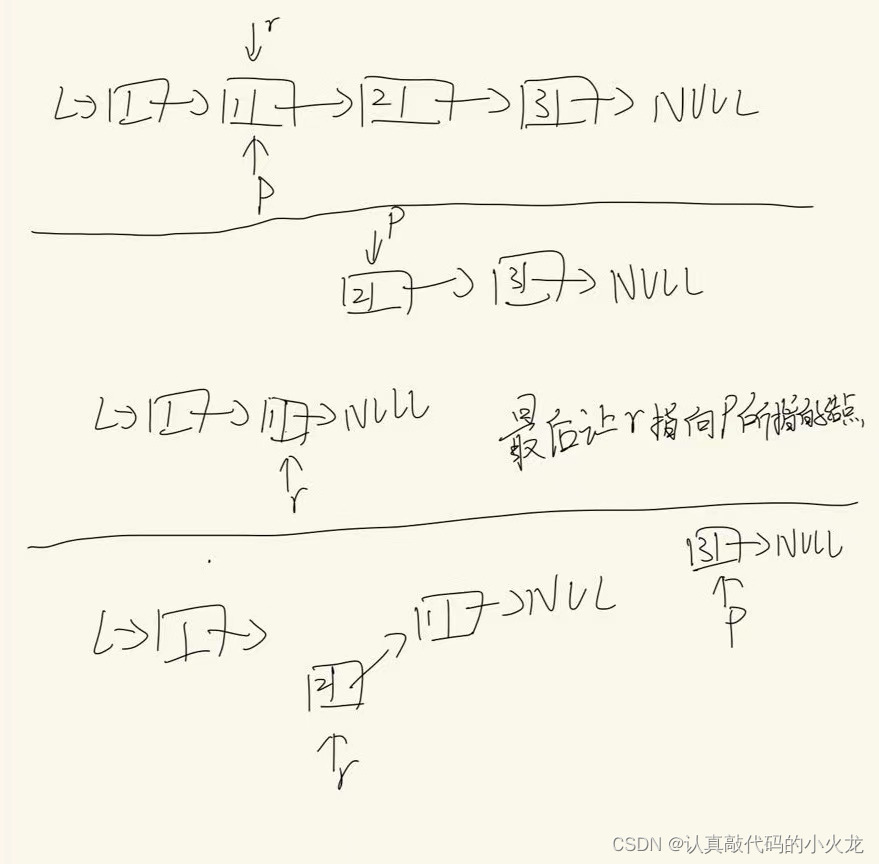 r
L 1 2 3 NULL
P
P
2 3 NULL
L 1 NULL
最后让r指向P所指的结点
r
3 NULL
L 1 NUL
P
2
r
CSDN @认真敲代码的小火龙